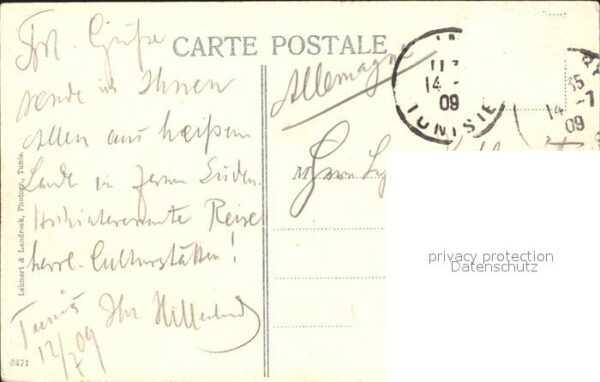 CARTE POSTALE
Frl. Grüße
sende ich Ihnen
Allen aus heißem
Lande im fernen Süden.
Hochinteressante Reise
herrl. Culturstätten!
Tunis Ihr
12/7 09
Allemagne
M Herrn
14 - 09
TUNISIE
14 - 7
09
Lehnert & Landrock, Photogr., Tunis.
8471
privacy protection
Datenschutz